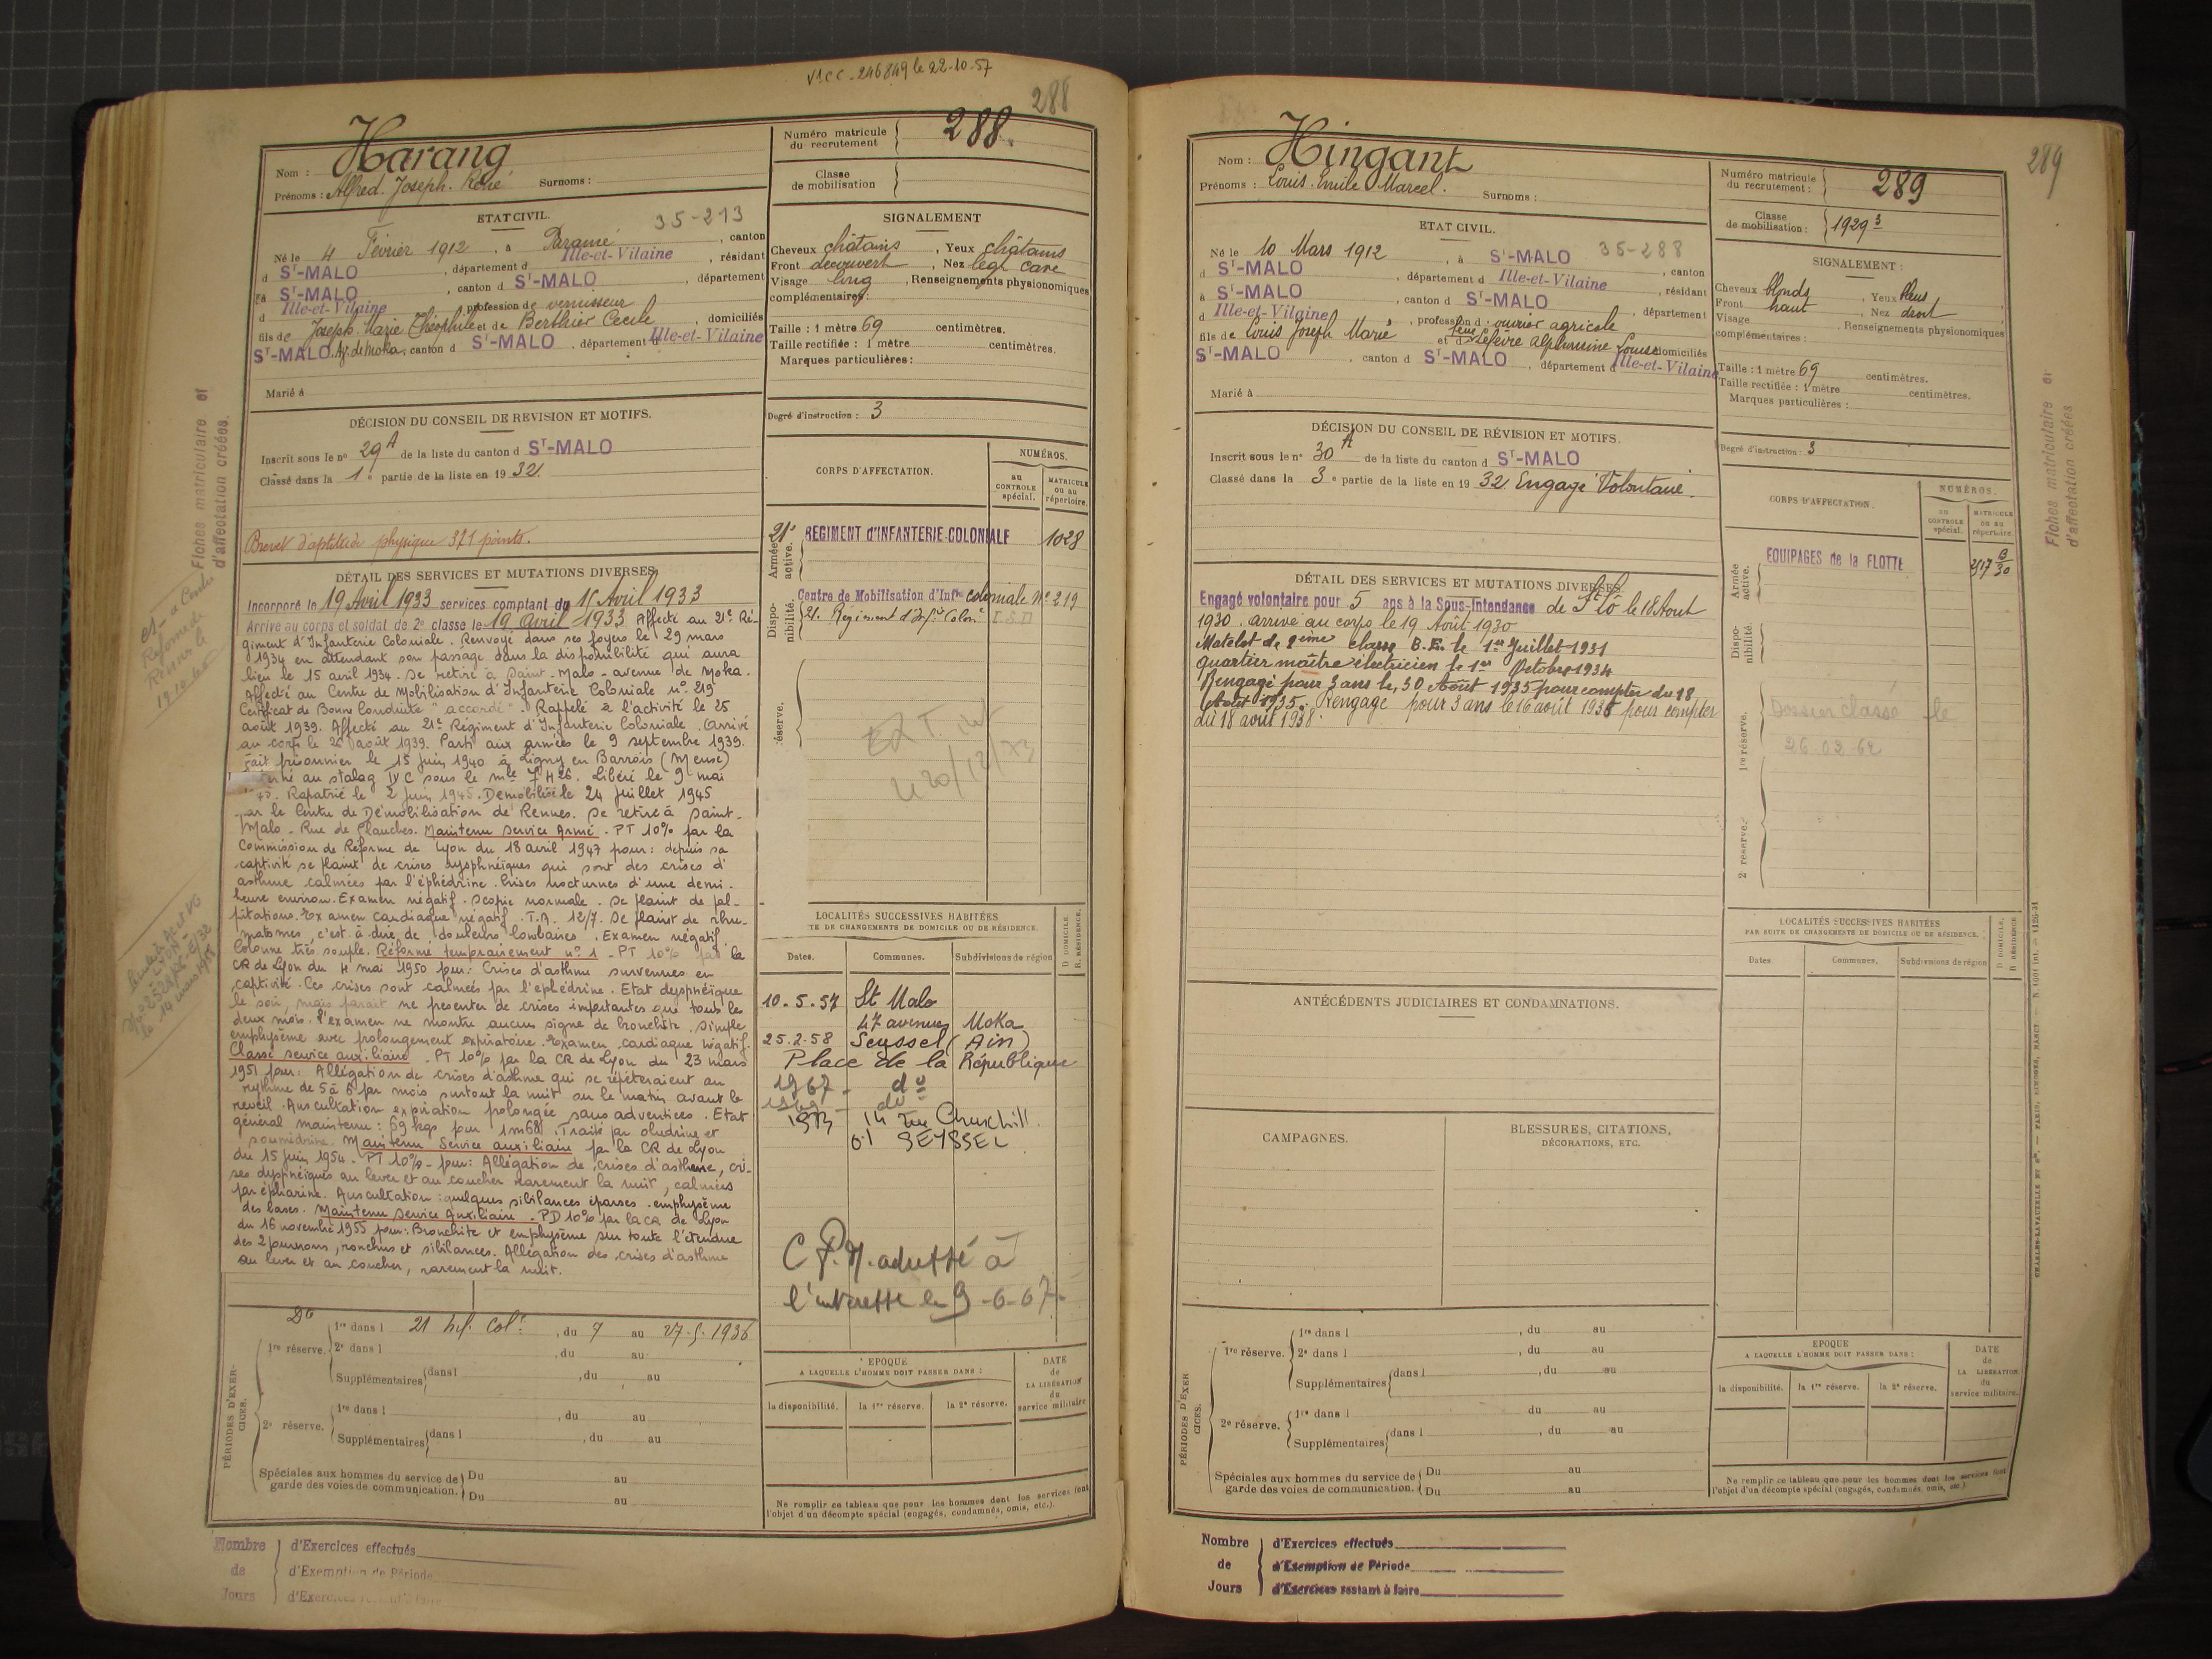 V1CC-246849 le 22-10-57
288
Nom : Harang
Prénoms : Alfred. Joseph. René Surnoms :
Numéro matricule du recrutement 288.
Classe de mobilisation
ETAT CIVIL.
35-213
Né le 4 Février 1912, à Paramé, canton
d St-MALO, département d Ille-et-Vilaine, résidant
à St-MALO, canton d St-MALO, département
d Ille-et-Vilaine, profession de vernisseur
fils de Joseph Marie Théophile et de Berthier Cecile, domiciliés
St-MALO. Av. de Moka, canton d St-MALO, département d Ille-et-Vilaine
Marié à
SIGNALEMENT
Cheveux châtains, Yeux châtains
Front découvert, Nez légt cave
Visage long, Renseignements physionomiques
complémentaires :
Taille : 1 mètre 69 centimètres.
Taille rectifiée : 1 mètre centimètres.
Marques particulières :
Degré d'instruction : 3
DÉCISION DU CONSEIL DE REVISION ET MOTIFS.
Inscrit sous le no 29A de la liste du canton d St-MALO
Classé dans la 1e partie de la liste en 1932.
Brevet d'aptitude physique 371 points.
Fiches matriculaire et
d'affectation créées.
CORPS D'AFFECTATION.
NUMÉROS.
au CONTROLE spécial.
MATRICULE ou au répertoire.
Armée active.
21e REGIMENT d'INFANTERIE COLONIALE 1028
Disponibilité.
Centre de Mobilisation d'Infrie coloniale No 219
21. Régiment d'Infie Colone
réserve.
DÉTAIL DES SERVICES ET MUTATIONS DIVERSES.
Incorporé le 19 Avril 1933 services comptant du 15 Avril 1933
Arrivé au corps et soldat de 2e classe le 19 avril 1933 Affecté au 21e Ré-
giment d'Infanterie Coloniale. Renvoyé dans ses foyers le 29 mars
1934 en attendant son passage dans la disponibilité qui aura
lieu le 15 avril 1934. Se retire à Saint-Malo - avenue de Moka.
Affecté au Centre de Mobilisation d'Infanterie Coloniale no 219
Certificat de Bonne Conduite "accordé". Rappelé à l'activité le 25
août 1939. Affecté au 21e Régiment d'Infanterie Coloniale. Arrivé
au corps le 26 août 1939. Parti aux armées le 9 septembre 1939.
Fait prisonnier le 15 juin 1940 à Ligny en Barrois (Meuse)
au stalag IV C sous le mle 7426. Libéré le 9 mai
45. Rapatrié le 2 juin 1945. Démobilisé le 24 juillet 1945
par le Centre de Démobilisation de Rennes. Se retire à Saint-
Malo - Rue de Planches. Maintenu Service Armé. PT 10% par la
Commission de Réforme de Lyon du 18 avril 1947 pour : depuis sa
captivité se plaint de crises dysphnéiques qui sont des crises d'
asthme calmées par l'éphédrine. Crises nocturnes d'une demi-
heure environ. Examen négatif. Scopie normale. Se plaint de pal-
pitations. Examen cardiaque négatif. T.A. 12/7. Se plaint de rhu-
matismes, c'est à dire de douleurs lombaires. Examen négatif.
Colonne très souple. Réformé temporairement no 1 - PT 10% par la
CR de Lyon du 4 mai 1950 pour : Crises d'asthme survenues en
captivité. Ces crises sont calmées par l'éphédrine. Etat dyspnéique
le soir, mais parait ne présenter de crises importantes que tous les
deux mois. L'examen ne montre aucun signe de bronchite. Simple
emphysème avec prolongement expiratoire. Examen cardiaque négatif.
Classé service auxiliaire. PT 10% par la CR de Lyon du 23 mars
1951 pour : Allégation de crises d'asthme qui se répèteraient au
rythme de 5 à 6 par mois surtout la nuit ou le matin avant le
réveil. Auscultation expiration prolongée sans adventices. Etat
général maintenu : 69 kgs pour 1m68. Traité par aludrine et
soumédrine. Maintenu Service auxiliaire par la CR de Lyon
du 15 juin 1954 - PT 10% - pour : Allégation de crises d'asthme, cri-
ses dyspnéiques au lever et au coucher rarement la nuit, calmées
par épharine. Auscultation : quelques sibilances éparses. emphysème
des bases. Maintenu Service Auxiliaire. PD 10% par la CR de Lyon
du 16 novembre 1955 pour : Bronchite et emphysème sur toute l'étendue
des 2 poumons, ronchus et sibilances. Allégation des crises d'asthme
au lever et au coucher, rarement la nuit.
LOCALITÉS SUCCESSIVES HABITÉES
TE DE CHANGEMENTS DE DOMICILE OU DE RÉSIDENCE.
D DOMICILE. R. RÉSIDENCE.
Dates. Communes. Subdivisions de région
10.5.57 St Malo
47 avenue Moka
25.2.58 Seyssel (Ain)
Place de la République
1967 - do
1969 - do
1973 14 rue Churchill
01 SEYSSEL
C.P.M. adressé à
l'intéressé le 9-6-67.
PÉRIODES D'EXERCICES.
1re réserve. 1re dans l 21 Inf. Cole, du 7 au 27.5.1936
2e dans l , du au
Supplémentaires dans l , du au
2e réserve. 1re dans l , du au
Supplémentaires dans l , du au
Spéciales aux hommes du service de garde des voies de communication. Du au
Du au
EPOQUE
A LAQUELLE L'HOMME DOIT PASSER DANS :
la disponibilité. la 1re réserve. la 2e réserve.
DATE de LA LIBÉRATION du service militaire
Ne remplir ce tableau que pour les hommes dont les services font
l'objet d'un décompte spécial (engagés, condamnés, omis, etc.).
Nombre de Jours
d'Exercices effectués
d'Exemption de Période
289
Nom : Hingant
Prénoms : Louis. Emile Marcel. Surnoms :
Numéro matricule du recrutement : 289
Classe de mobilisation : 1929 3
ETAT CIVIL.
Né le 10 Mars 1912, à St-MALO 35-288
d St-MALO, département d Ille-et-Vilaine, canton
à St-MALO, résidant
d Ille-et-Vilaine, canton d St-MALO, département
, profession d : ouvrier agricole
fils de Louis Joseph Marie et d feue Lefèvre alphonsine Louise domiciliés
St-MALO, canton d St-MALO, département d Ille-et-Vilaine
Marié à
SIGNALEMENT :
Cheveux blonds, Yeux bleus
Front haut, Nez droit
Visage , Renseignements physionomiques
complémentaires :
Taille : 1 mètre 69 centimètres.
Taille rectifiée : 1 mètre centimètres.
Marques particulières :
Degré d'instruction : 3
DÉCISION DU CONSEIL DE RÉVISION ET MOTIFS.
Inscrit sous le no 30A de la liste du canton d St-MALO
Classé dans la 3e partie de la liste en 1932 Engagé Volontaire.
CORPS D'AFFECTATION.
NUMÉROS.
au CONTROLE spécial.
MATRICULE ou au répertoire.
Armée active.
EQUIPAGES de la FLOTTE
Disponibilité.
1re réserve.
Dossier classé le
26.02.62
2e réserve.
Fiches matriculaire et
d'affectation créées
DÉTAIL DES SERVICES ET MUTATIONS DIVERSES.
Engagé volontaire pour 5 ans à la Sous-Intendance de St Lô le 18 Aout
1930. arrivé au corps le 19 Août 1930
Matelot de 2ème classe B.E. le 1er Juillet 1931
quartier maître électricien le 1er Octobre 1934
Rengagé pour 3 ans le, 30 Août 1935 pour compter du 18
Août 1935. Rengagé pour 3 ans le 16 août 1938 pour compter
du 18 août 1938.
ANTÉCÉDENTS JUDICIAIRES ET CONDAMNATIONS.
CAMPAGNES.
BLESSURES, CITATIONS,
DÉCORATIONS, ETC.
LOCALITÉS SUCCESSIVES HABITÉES
PAR SUITE DE CHANGEMENTS DE DOMICILE OU DE RÉSIDENCE.
D DOMICILE. R RÉSIDENCE.
Dates Communes. Subdivisions de région
PÉRIODES D'EXERCICES.
1re réserve. 1re dans l , du au
2e dans l , du au
Supplémentaires dans l , du au
2e réserve. 1re dans l du au
Supplémentaires dans l , du au
Spéciales aux hommes du service de garde des voies de communication. Du au
Du au
EPOQUE
A LAQUELLE L'HOMME DOIT PASSER DANS :
la disponibilité. la 1re réserve. la 2e réserve.
DATE de LA LIBÉRATION du service militaire.
Ne remplir ce tableau que pour les hommes dont les services font
l'objet d'un décompte spécial (engagés, condamnés, omis, etc.)
Nombre de Jours
d'Exercices effectués
d'Exemption de Période
d'Exercices restant à faire